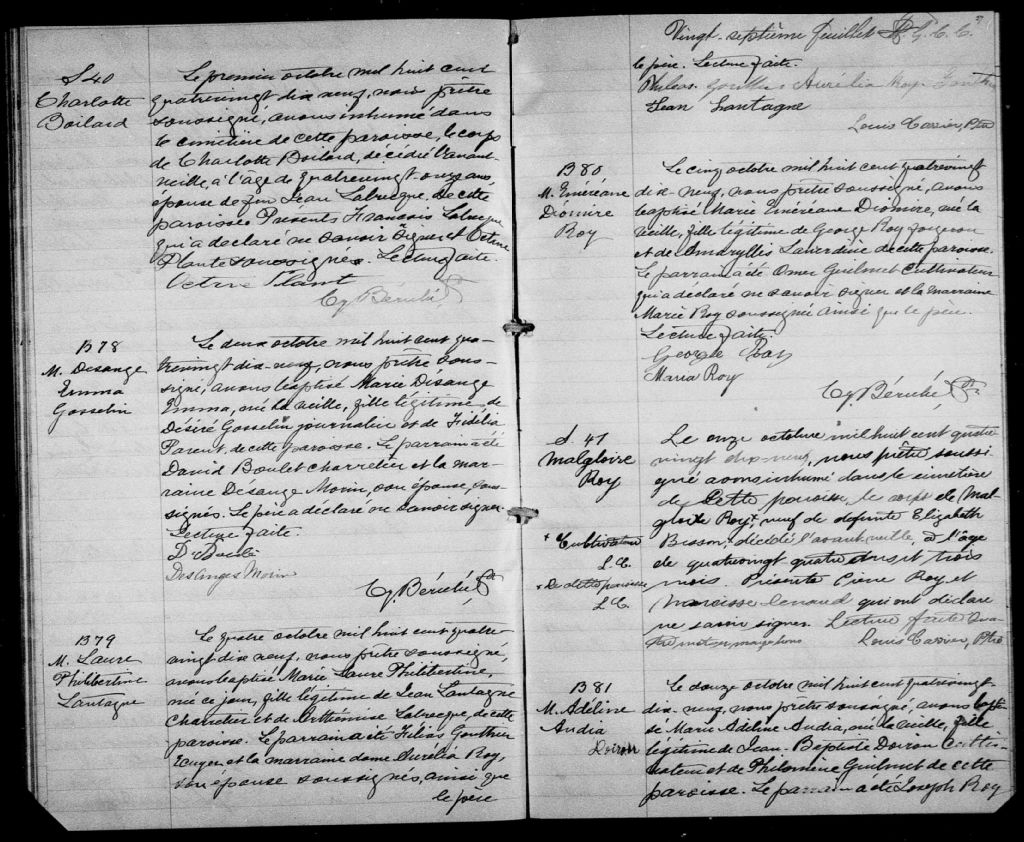 S 40
Charlotte
Boilard
Le premier octobre mil huit cent
quatrevingt dix neuf, nous prêtre
soussigné, avons inhumé dans
le cimetière de cette paroisse, le corps
de Charlotte Boilard, décédée l'avant
veille, à l'âge de quatrevingt onze ans
épouse de feu Jean Labrecque, de cette
paroisse. Presents François Labrecque
qui a declaré ne savoir signer et Octave
Plante soussignés. Lecture faite.
Octave Plant
Cy. Bérubé Ptr
B 78
M. Desange
Emma
Gosselin
Le deux octobre mil huit cent qua-
trevingt dix-neuf, nous prêtre sous-
signé, avons baptisé Marie Désange
Emma, née la veille, fille légitime de
Désiré Gosselin journalier et de Fidélia
Parent, de cette paroisse. Le parrain a été
David Boulet charretier et la mar-
raine Désange Morin, son épouse, sous-
signés. Le père a déclaré ne savoir signer.
Lecture faite.
Desanges Morin
Cy. Bérubé Ptr
B 79
M. Laure
Philibertine
Lantagne
Le quatre octobre mil huit cent quatre
vingt dix neuf, nous prêtre soussigné,
avons baptisé Marie Laure Philibertine,
née ce jour, fille légitime de Jean Lantagne
Charretier et de Arthémise Labrecque, de cette
paroisse. Le parrain a été Gonthier
Ecuyer et la marraine dame Aurélia Roy,
son épouse soussignés, ainsi que
le père
Vingt-septième feuillet G. C. C.
le père. Lecture faite.
Aurélia Roy
Jean Lantagne
Louis Carrier, Ptre
B 80
M. Eméréane
Diomire
Roy
Le cinq octobre mil huit cent quatrevingt
dix-neuf, nous prêtre soussigné, avons
baptisé Marie Eméréane Diomire, née la
veille, fille légitime de George Roy forgeron
et de Amaryllis Laverdière de cette paroisse.
Le parrain a été Omer Guilmet Cultivateur
qui a déclaré ne savoir signer et la marraine
Marie Roy soussignée ainsi que le père.
Lecture faite.
George Roy
Maria Roy
Cy. Bérubé, Ptr
S. 41
Malgloire
Roy
+ Cultivateur
L. C.
+ De cette paroisse
L C.
Le onze octobre mil huit cent quatre
vingt dix-neuf, nous prêtre soussi-
gné avons inhumé dans le cimetière
de cette paroisse, le corps de Mal
gloire Roy+, veuf de defunte Elizabeth
Bisson+, décédé l'avant veille, à l'age
de quatrevingt quatre ans et trois
mois. Présents Pierre Roy et
Narcisse Renaud qui ont déclaré
ne savoir signer. Lecture faite. Qua
tre mots en marge bons Louis Carrier, Ptre
B 81
M. Adéline
Audia
Doiron
Le douze octobre mil huit cent quatrevingt-
dix-neuf, nous prêtre soussigné, avons bapti
sé Marie Adéline Audia, née la veille, fille
légitime de Jean-Baptiste Doiron Culti-
vateur et de Philomène Guilmet de cette
paroisse. Le parrain a été Joseph Roy